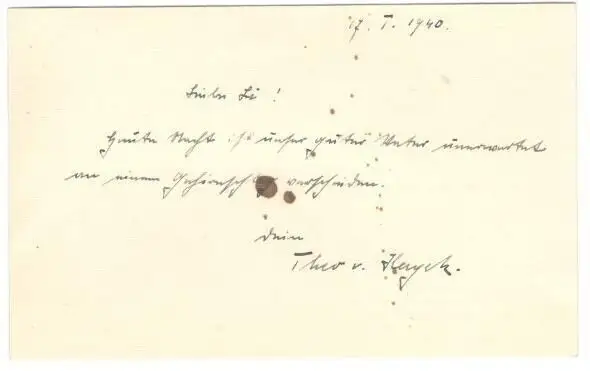 17. I. 1940.
Liebe Li!
Heute Nacht ist unser guter Vater unerwartet
an einem Gehirnschlag verschieden.
Dein
Theo v. Hayek.